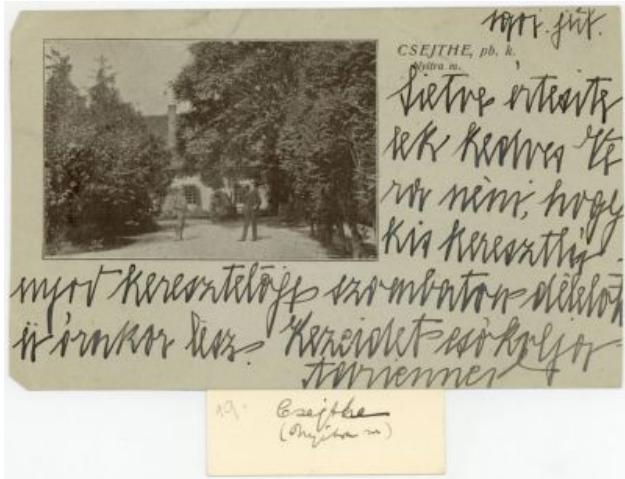 1901. júl.
CSEJTHE, pb. k.
Nyitra m.
Sietve értesite
lek kedves Ve
ra néni, hogy
kis keresztlá
nyod keresztelője szombaton délelőt
11 órakor lesz. Kezeidet csókolja
Adrienne
19.
Csejthe
(Nyitra m)